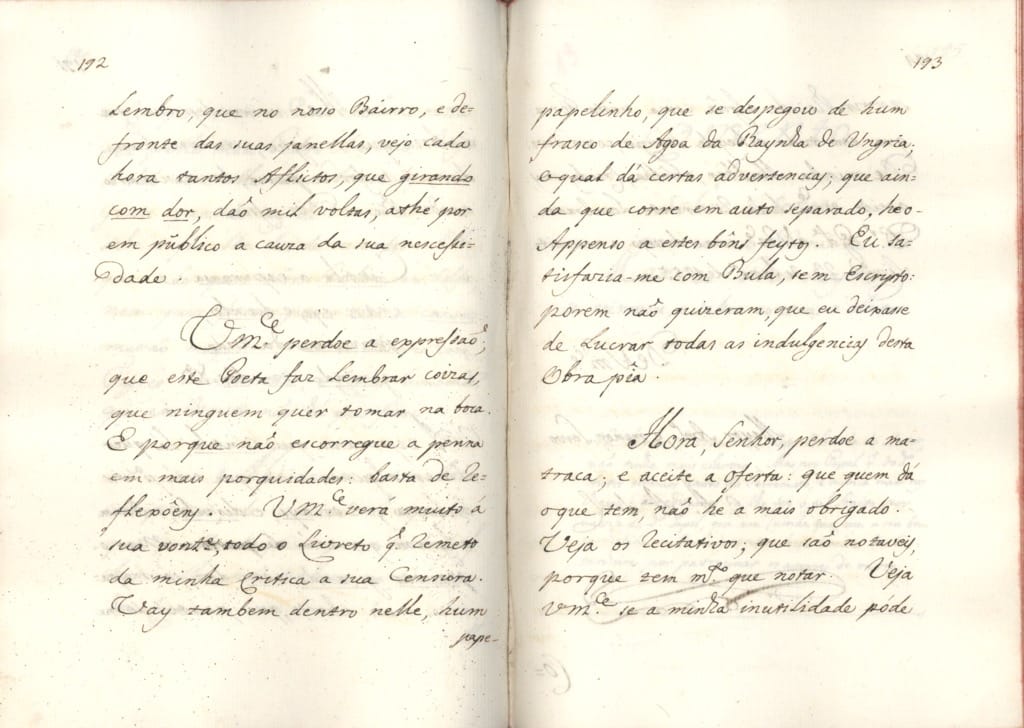 192
Lembro, que no noso Báirro, e de=
fronte das suas janellas, vejo cada
hora tantos Aflictos, que girando
com dor, daõ mil voltas, athé por
em pùblico a cauza da sua nescessi-
dade.
Vm.ce perdoe a expressaõ;
que este Poeta faz lembrar coizas,
que ninguem quer tomar na boca.
E porque naõ escorregue a penna
em mais porquidades: basta de Re-
flexoẽns. VM.ce verá muito á
sua vont.e, todo o Livreto q̃ Remeto
da minha Critica a sua Censura.
Vay tambem dentro nelle, hum
pape-
193
papelinho, que se despegou de hum
frasco de Agoa da Raynha de Ungria;
o qual dá certas advertencias; que ain-
da que corre em auto separado, he o
Appenso a estes bôns feytos. Eu sa-
tisfaria-me com Bula, sem Escrypto:
porem naõ quizeram, que eu deixasse
de Lucrar todas as indulgencias desta
Obra pîa.
Hora, Senhor, perdoe a ma-
traca; e aceite a oferta: que quem dá
o que tem, naõ hé a mais obrigado.
Veja os Recitativos; que saõ notaveis,
porque tem m.to que notar. Veja
Vm.ce se a minha inutilidade póde